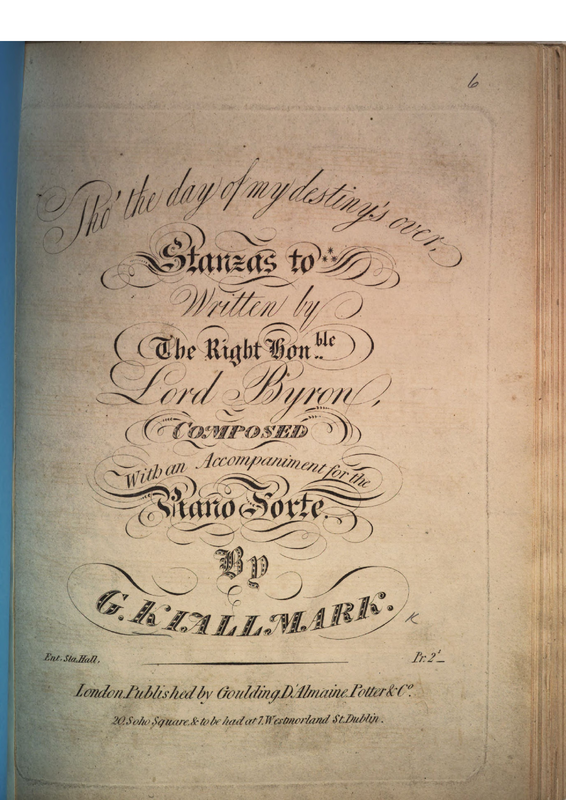 6
Tho' the day of my destiny's over.
Stanzas to ***
Written by
The Right Hon.ble
Lord Byron,
COMPOSED
With an Accompaniment for the
Piano Forte.
By
G. KIALLMARK.
K
Ent. Sta. Hall. Pr. 2/_
London. Published by Goulding, D'Almaine, Potter & Co.
20, Soho Square, & to be had at 7, Westmorland St. Dublin.